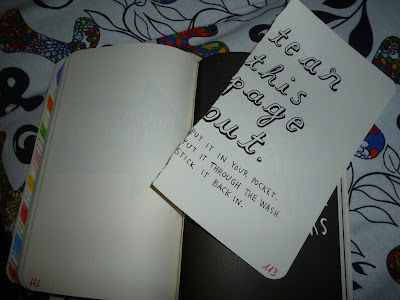 tear
this
page
out.
PUT IT IN YOUR POCKET.
PUT IT THROUGH THE WASH.
STICK IT BACK IN.
112
113